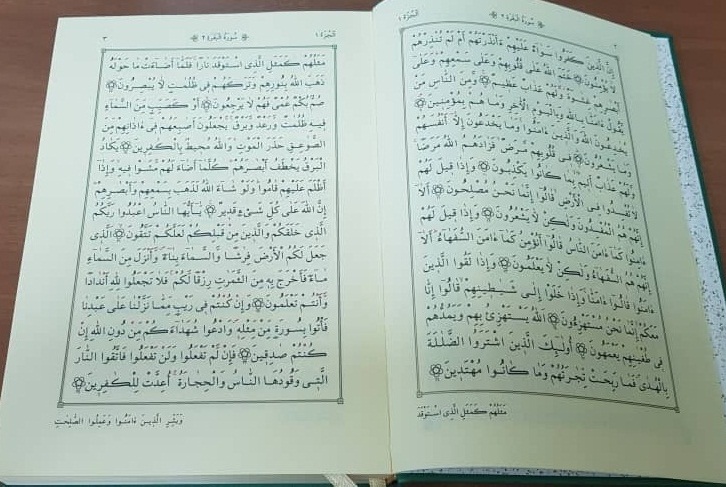 الجزء ١ سورة البقرة ٢ ٢
إِنَّ الَّذِينَ كَفَرُوا سَوَاءٌ عَلَيْهِمْ ءَأَنْذَرْتَهُمْ أَمْ لَمْ تُنْذِرْهُمْ
لَا يُؤْمِنُونَ ۝ خَتَمَ اللهُ عَلَى قُلُوبِهِمْ وَعَلَى سَمْعِهِمْ وَعَلَى
أَبْصَٰرِهِمْ غِشَٰوَةٌ وَلَهُمْ عَذَابٌ عَظِيمٌ ۝ وَمِنَ النَّاسِ مَنْ
يَقُولُ ءَامَنَّا بِاللهِ وَبِالْيَوْمِ الْأَخِرِ وَمَا هُمْ بِمُؤْمِنِينَ ۝
يُخَٰدِعُونَ اللهَ وَالَّذِينَ ءَامَنُوا وَمَا يَخْدَعُونَ إِلَّا أَنْفُسَهُمْ
وَمَا يَشْعُرُونَ ۝ فِي قُلُوبِهِمْ مَرَضٌ فَزَادَهُمُ اللهُ مَرَضًا
وَلَهُمْ عَذَابٌ أَلِيمٌ بِمَا كَانُوا يَكْذِبُونَ ۝ وَإِذَا قِيلَ لَهُمْ
لَا تُفْسِدُوا فِي الْأَرْضِ قَالُوا إِنَّمَا نَحْنُ مُصْلِحُونَ ۝ أَلَا
إِنَّهُمْ هُمُ الْمُفْسِدُونَ وَلَٰكِنْ لَا يَشْعُرُونَ ۝ وَإِذَا قِيلَ لَهُمْ
ءَامِنُوا كَمَا ءَامَنَ النَّاسُ قَالُوا أَنُؤْمِنُ كَمَا ءَامَنَ السُّفَهَاءُ أَلَا
إِنَّهُمْ هُمُ السُّفَهَاءُ وَلَٰكِنْ لَا يَعْلَمُونَ ۝ وَإِذَا لَقُوا الَّذِينَ
ءَامَنُوا قَالُوا ءَامَنَّا وَإِذَا خَلَوْا إِلَى شَيَٰطِينِهِمْ قَالُوا إِنَّا
مَعَكُمْ إِنَّمَا نَحْنُ مُسْتَهْزِءُونَ ۝ اللهُ يَسْتَهْزِئُ بِهِمْ وَيَمُدُّهُمْ
فِي طُغْيَٰنِهِمْ يَعْمَهُونَ ۝ أُولَٰئِكَ الَّذِينَ اشْتَرَوُا الضَّلَٰلَةَ
بِالْهُدَى فَمَا رَبِحَتْ تِجَٰرَتُهُمْ وَمَا كَانُوا مُهْتَدِينَ ۝
مَثَلُهُمْ كَمَثَلِ الَّذِي اسْتَوْقَدَ
الجزء ١ سورة البقرة ٢ ٣
مَثَلُهُمْ كَمَثَلِ الَّذِي اسْتَوْقَدَ نَارًا فَلَمَّا أَضَاءَتْ مَا حَوْلَهُ
ذَهَبَ اللهُ بِنُورِهِمْ وَتَرَكَهُمْ فِي ظُلُمَٰتٍ لَا يُبْصِرُونَ ۝
صُمٌّ بُكْمٌ عُمْيٌ فَهُمْ لَا يَرْجِعُونَ ۝ أَوْ كَصَيِّبٍ مِنَ السَّمَاءِ
فِيهِ ظُلُمَٰتٌ وَرَعْدٌ وَبَرْقٌ يَجْعَلُونَ أَصَٰبِعَهُمْ فِي ءَاذَانِهِمْ مِنَ
الصَّوَٰعِقِ حَذَرَ الْمَوْتِ وَاللهُ مُحِيطٌ بِالْكَٰفِرِينَ ۝ يَكَادُ
الْبَرْقُ يَخْطَفُ أَبْصَٰرَهُمْ كُلَّمَا أَضَاءَ لَهُمْ مَشَوْا فِيهِ وَإِذَا
أَظْلَمَ عَلَيْهِمْ قَامُوا وَلَوْ شَاءَ اللهُ لَذَهَبَ بِسَمْعِهِمْ وَأَبْصَٰرِهِمْ
إِنَّ اللهَ عَلَى كُلِّ شَيْءٍ قَدِيرٌ ۝ يَٰأَيُّهَا النَّاسُ اعْبُدُوا رَبَّكُمُ
الَّذِي خَلَقَكُمْ وَالَّذِينَ مِنْ قَبْلِكُمْ لَعَلَّكُمْ تَتَّقُونَ ۝ الَّذِي
جَعَلَ لَكُمُ الْأَرْضَ فِرَٰشًا وَالسَّمَاءَ بِنَاءً وَأَنْزَلَ مِنَ السَّمَاءِ
مَاءً فَأَخْرَجَ بِهِ مِنَ الثَّمَرَٰتِ رِزْقًا لَكُمْ فَلَا تَجْعَلُوا لِلهِ أَنْدَادًا
وَأَنْتُمْ تَعْلَمُونَ ۝ وَإِنْ كُنْتُمْ فِي رَيْبٍ مِمَّا نَزَّلْنَا عَلَى عَبْدِنَا
فَأْتُوا بِسُورَةٍ مِنْ مِثْلِهِ وَادْعُوا شُهَدَاءَكُمْ مِنْ دُونِ اللهِ إِنْ
كُنْتُمْ صَٰدِقِينَ ۝ فَإِنْ لَمْ تَفْعَلُوا وَلَنْ تَفْعَلُوا فَاتَّقُوا النَّارَ
الَّتِي وَقُودُهَا النَّاسُ وَالْحِجَارَةُ أُعِدَّتْ لِلْكَٰفِرِينَ ۝
وَبَشِّرِ الَّذِينَ ءَامَنُوا وَعَمِلُوا الصَّٰلِحَٰتِ